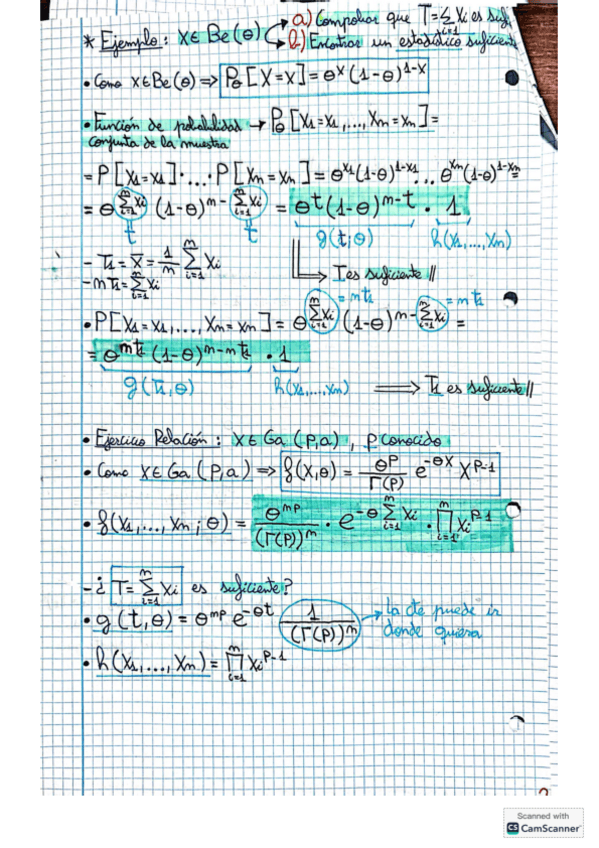 * Ejemplo: X∈Be(θ) a) Comprobar que T=∑ᵢ₌₁ Xi es sufi.
b) Encontrar un estadístico suficiente
• Como X∈Be(θ) ⇒ Pθ[X=x]=θˣ(1-θ)¹⁻ˣ
• Función de probabilidad → Pθ[X₁=x₁,...,Xn=xn]=
conjunta de la muestra
=P[X₁=x₁]·...·P[Xn=xn]=θˣ¹(1-θ)¹⁻ˣ¹...θˣⁿ(1-θ)¹⁻ˣⁿ=
=θ^(∑ᵢ₌₁ⁿ Xi) (1-θ)^(n-∑ᵢ₌₁ⁿ Xi) = θᵗ(1-θ)ⁿ⁻ᵗ · 1
t t g(t;θ) h(X₁,...,Xn)
- T₁=X̄=1/n ∑ᵢ₌₁ⁿ Xi → T es suficiente //
- nT₁=∑ᵢ₌₁ⁿ Xi =nt₁ =nt₁
• P[X₁=x₁,...,Xn=xn]=θ^(∑ᵢ₌₁ⁿ Xi) (1-θ)^(n-∑ᵢ₌₁ⁿ Xi) =
=θ^(nt₁) (1-θ)^(n-nt₁) · 1
g(T₁,θ) h(X₁,...,Xn) ⇒ T₁ es suficiente //
• Ejercicio Relación: X∈Ga(p,a), p conocido
• Como X∈Ga(p,a) ⇒ f(x,θ)=θᵖ/Γ(p) e^(-θx) x^(p-1)
• f(X₁,...,Xn;θ)=θⁿᵖ/(Γ(p))ⁿ · e^(-θ∑ᵢ₌₁ⁿ Xi) · ∏ᵢ₌₁ⁿ Xi^(p-1)
- ¿T=∑ᵢ₌₁ⁿ Xi es suficiente?
• g(t,θ)=θⁿᵖ e^(-θt) 1/(Γ(p))ⁿ → la cte puede ir
donde quiera
• h(X₁,...,Xn)=∏ᵢ₌₁ⁿ Xi^(p-1)
Scanned with
CS CamScanner